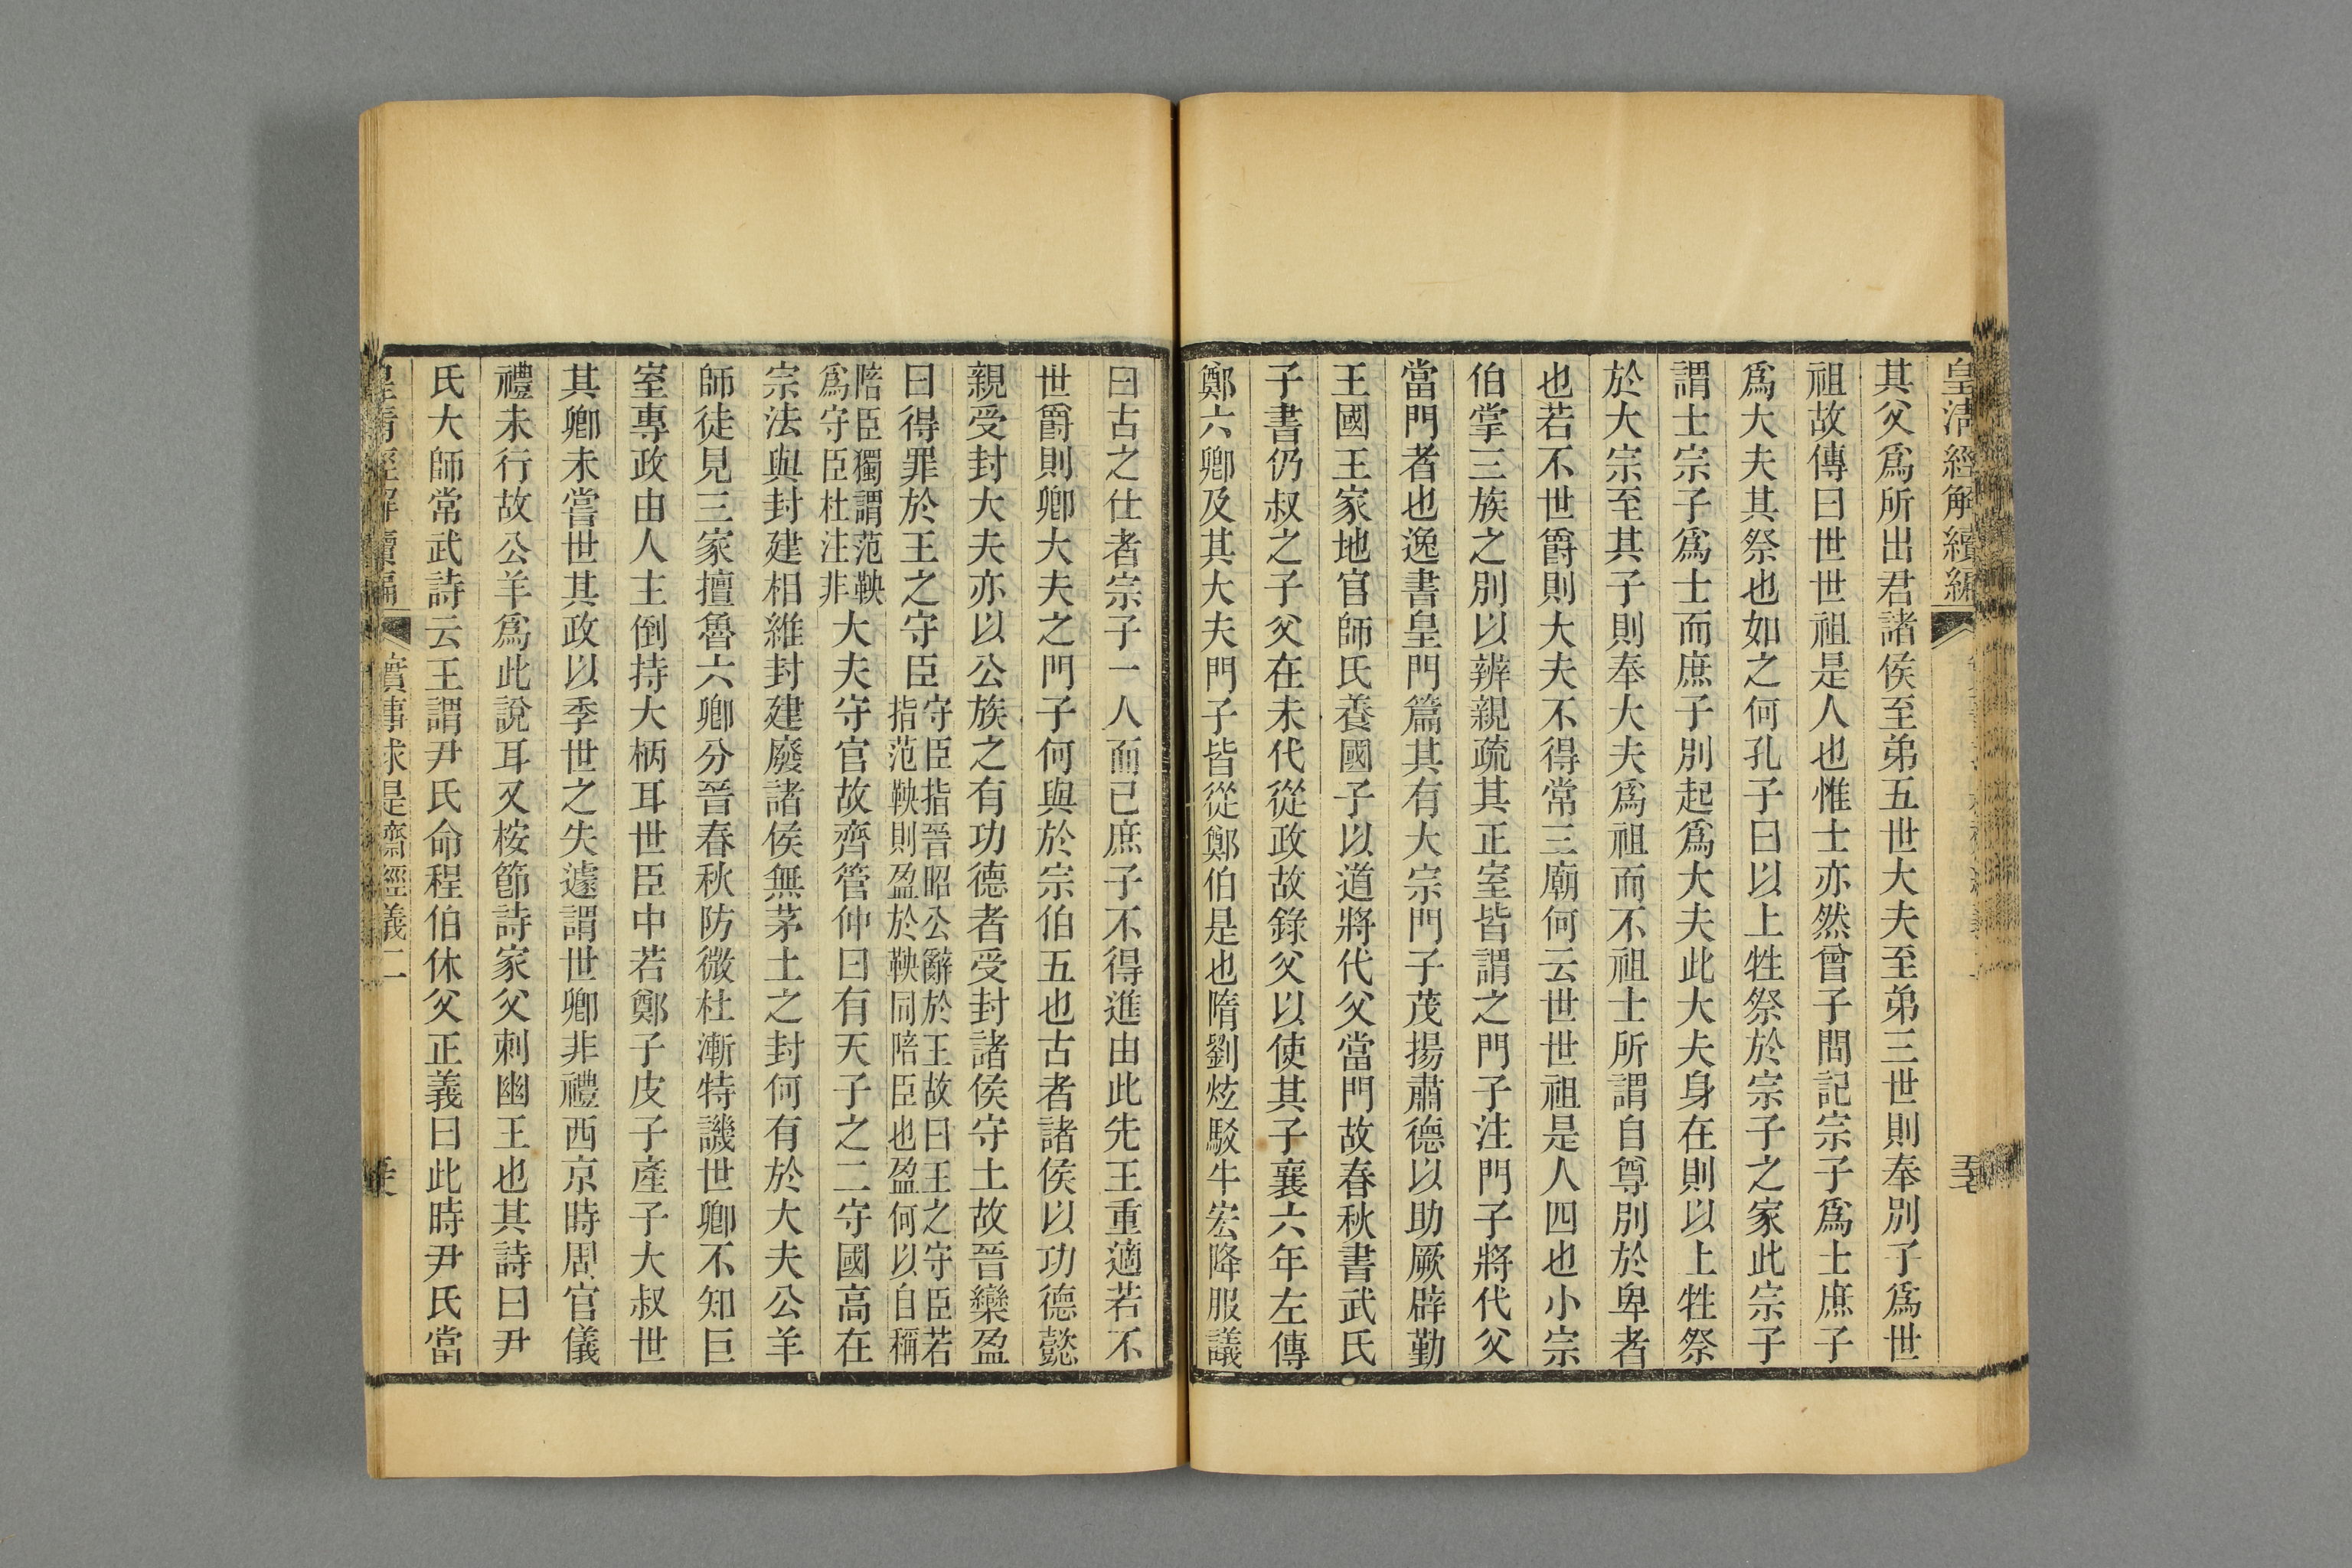 皇清經解續編
其父爲所出君諸侯至弟五世大夫至弟三世則奉別子爲世
祖故傳曰世世祖是人也惟士亦然曾子問記宗子爲士庶子
爲大夫其祭也如之何孔子曰以上牲祭於宗子之家此宗子
謂士宗子爲士而庶子別起爲大夫此大夫身在則以上牲祭
於大宗至其子則奉大夫爲祖而不祖士所謂自尊別於卑者
也若不世爵則大夫不得常三廟何云世世祖是人四也小宗
伯掌三族之別以辨親疏其正室皆謂之門子注門子將代父
當門者也逸書皇門篇其有大宗門子茂揚肅德以助厥辟勤
王國王家地官師氏養國子以道將代父當門故春秋書武氏
子書仍叔之子父在未代從政故錄父以使其子襄六年左傳
鄭六卿及其大夫門子皆從鄭伯是也隋劉炫駁牛宏降服議
曰古之仕者宗子一人而已庶子不得進由此先王重適若不
世爵則卿大夫之門子何與於宗伯五也古者諸侯以功德懿
親受封大夫亦以公族之有功德者受封諸侯守土故晉欒盈
曰得罪於王之守臣守臣指晉昭公辭於王故曰王之守臣若指范鞅則盈於鞅同陪臣也盈何以自稱
陪臣獨謂范鞅爲守臣杜注非大夫守官故齊管仲曰有天子之二守國高在
宗法與封建相維封建廢諸侯無茅土之封何有於大夫公羊
師徒見三家擅魯六卿分晉春秋防微杜漸特譏世卿不知巨
室專政由人主倒持大柄耳世臣中若鄭子皮子產子大叔世
其卿未嘗世其政以季世之失遽謂世卿非禮西京時周官儀
禮未行故公羊爲此說耳又桉節詩家父刺幽王也其詩曰尹
氏大師常武詩云王謂尹氏命程伯休父正義曰此時尹氏當
皇清經解續編 實事求是齋經義二